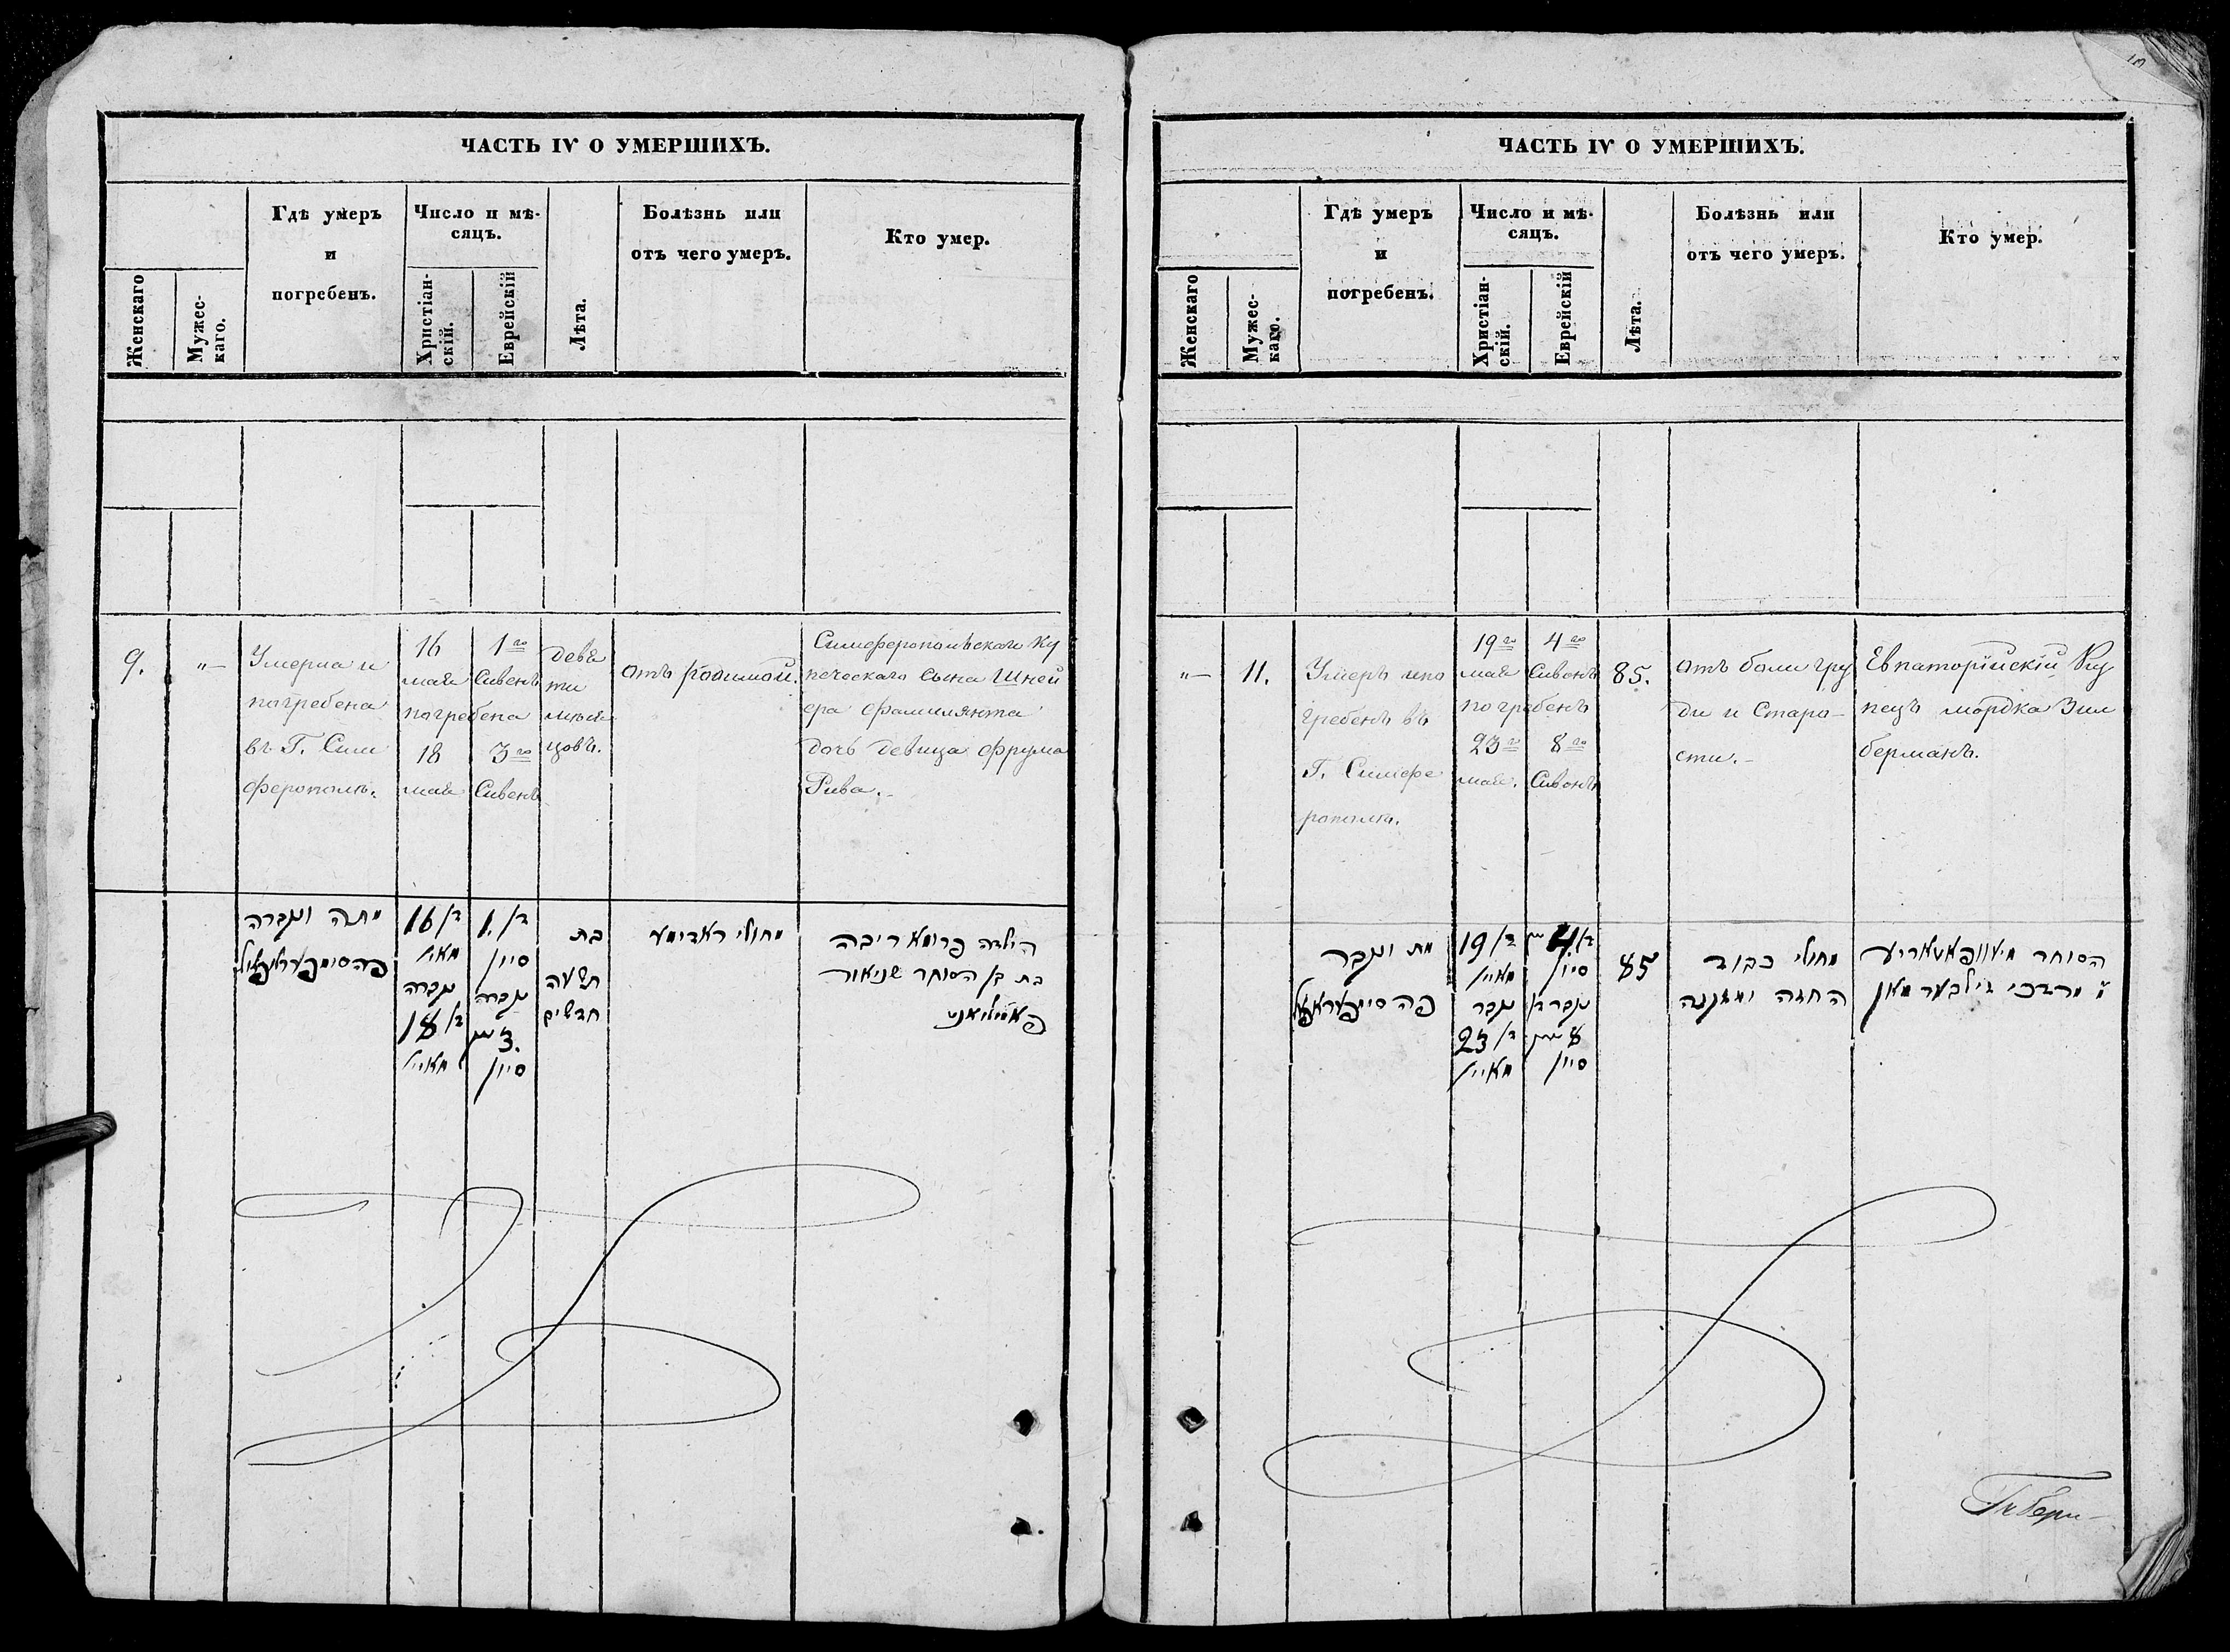 ЧАСТЬ IV О УМЕРШИХЪ.
Женскаго
Мужес-
каго.
Гдѣ умеръ
и
погребенъ.
Число и мѣ-
сяцъ.
Христіан-
скій.
Еврейскій
Лѣта.
Болѣзнь или
отъ чего умеръ.
Кто умер.
9.
"—
Умерла и
погребена
въ Г. Сим
ферополѣ.
16
мая
погребена
18
мая
1го
Сивенъ
3го
Сивенъ
девя
ти
мѣся
цовъ.
отъ родимой.
Симферопольскаго Ку
печескаго сына Шней
ера Фамилянта
дочь девица Фрума
Рива.
מתה ונקברה
פה סימפעראפאל
בי 16
מאי
נקברה
בי 18
מאיי
בי 1.
סיון
נקברה
3.
סיון
בת
תשעה
חדשים
מחולי ראדימע
הילדה פרומא ריבה
בת בן הסוחר שניאור
פאמיליאנט
ЧАСТЬ IV О УМЕРШИХЪ.
Женскаго
Мужес-
каго.
Гдѣ умеръ
и
погребенъ.
Число и мѣ-
сяцъ.
Христіан-
скій.
Еврейскій
Лѣта.
Болѣзнь или
отъ чего умеръ.
Кто умер.
"—
11.
Умеръ и по
гребенъ въ
Г. Симфе
рополѣ.
19го
мая
погребенъ
23го
мая.
4го
Сивонъ
8го
Сивонъ
85.
отъ боли гру
ди и Старо-
сти.-
Евпаторійскій Ку
пецъ мордка Зил
берманъ.
מת ונקבר
פה סימפעראפאל
בי 19
מאיי
נקבר
בי 23
מאיי
בי 4
סיון
נקבר בי
8
סיון
85
מחולי כבוד
החזה ומזקנה
הסוחר מיעוופאטאריע
מרדכי זילבערמאן